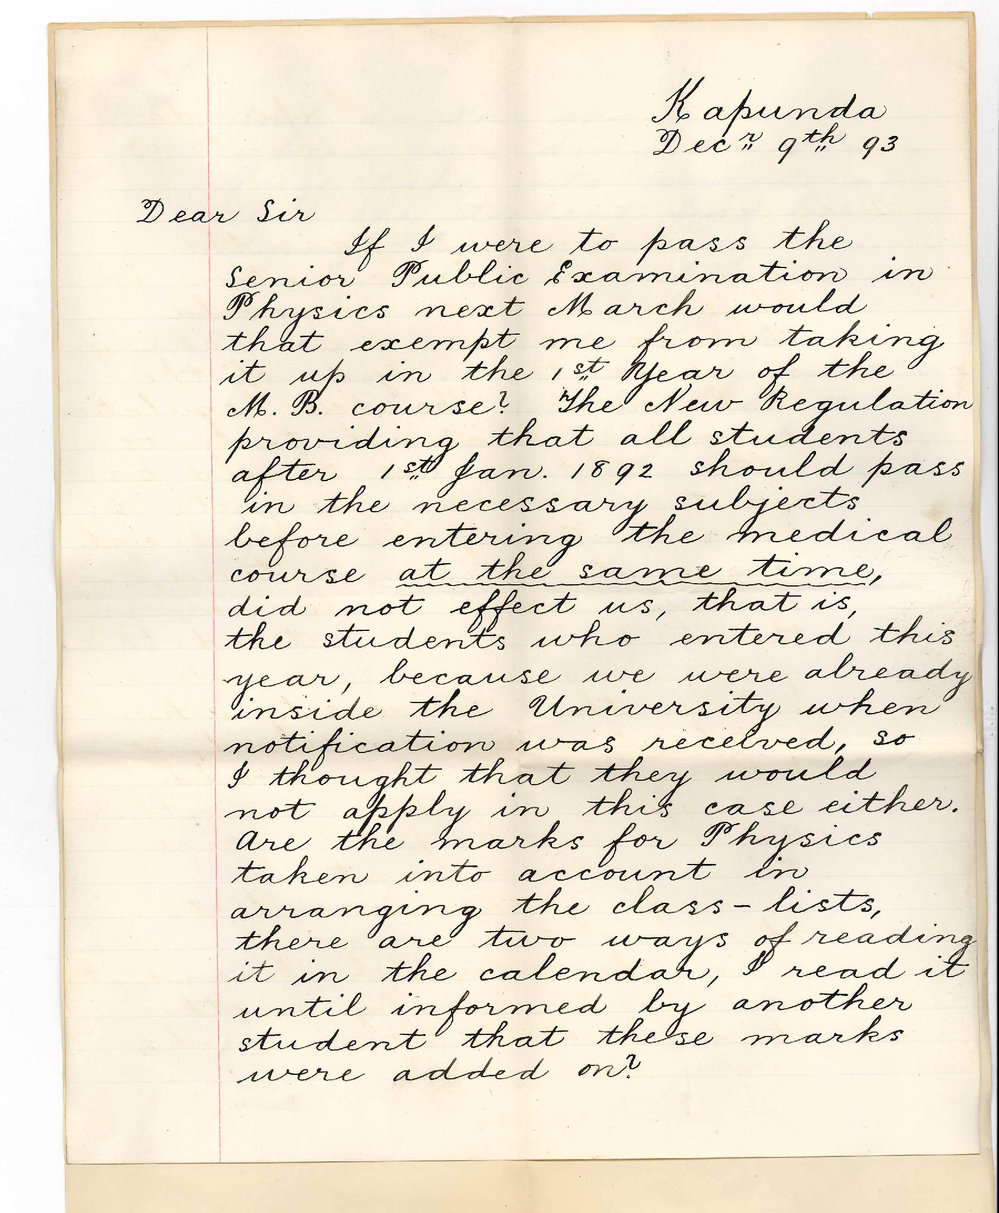 Kapunda
Decr 9th 93
Dear Sir
If I were to pass the
Senior Public Examination in
Physics next March would
that exempt me from taking
it up in the 1st Year of the
M. B. course? The New Regulation
providing that all students
after 1st Jan. 1892 should pass
in the necessary subjects
before entering the medical
course at the same time,
did not effect us, that is,
the students who entered this
year, because we were already
inside the University when
notification was received, so
I thought that they would
not apply in this case either.
Are the marks for Physics
taken into account in
arranging the class-lists,
there are two ways of reading
it in the calendar, I read it
until informed by another
student that these marks
were added on?